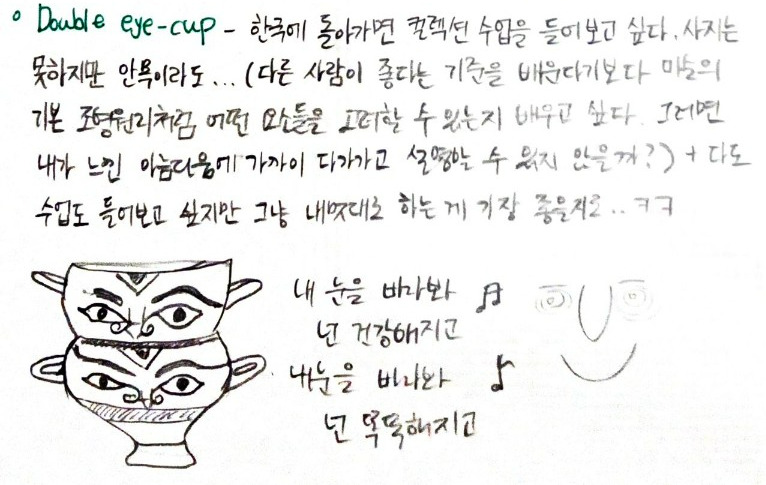 Double eye-cup - 한국에 돌아가면 컬렉션 수업을 들어보고 싶다. 사지는
못하지만 안목이라도... (다른 사람이 좋다는 기준을 배운다기보다 미술의
기본 조형원리처럼 어떤 요소들을 고려할 수 있는지 배우고 싶다. 그러면
내가 느낀 아름다움에 가까이 다가가고 설명할 수 있지 않을까?) + 다도
수업도 들어보고 싶지만 그냥 내멋대로 하는 게 가장 좋을지도.. ㅋㅋ
내 눈을 바라봐
넌 건강해지고
내 눈을 바라봐
넌 똑똑해지고